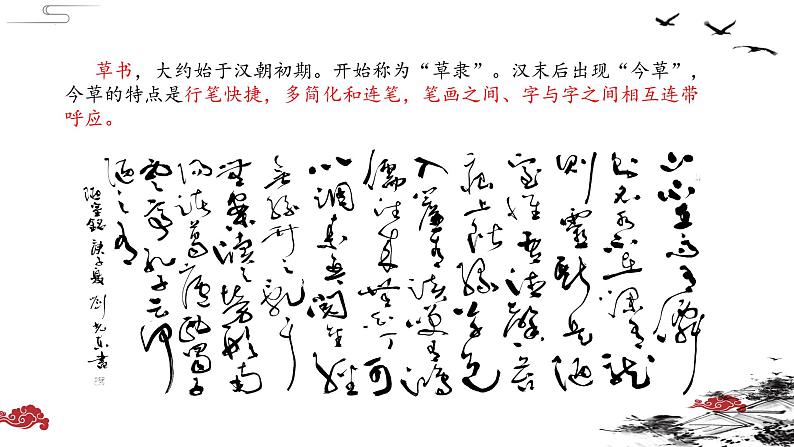 草书，大约始于汉朝初期。开始称为“草隶”。汉末后出现“今草”，
今草的特点是行笔快捷，多简化和连笔，笔画之间、字与字之间相互连带
呼应。
山不在高有僊
则名水不在深有龙
则灵斯是陋
室惟吾德馨苔
痕上阶绿草色
入帘青谈笑有鸿
儒往来无白丁可
以调素琴阅金经
无丝竹之乱耳
无案牍之劳形南
阳诸葛庐西蜀子
云亭孔子云何
陋之有
陋室铭 庚子夏 刘